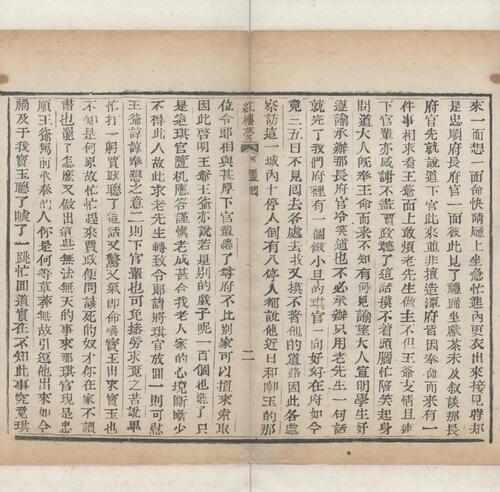 來一面想一面命快請廳上坐急忙進內更衣出來接見時却
是忠順府長府官一面彼此見了禮歸坐獻茶未及叙談那長
府官先就說道下官此來並非擅造潭府皆因奉命而來有一
件事相求看王爺面上敢煩老先生做主不但王爺支情且連
下官輩亦感謝不盡賈政聽了這話摸不着頭腦忙陪笑起身
問道大人旣奉王命而來不知有何見諭望大人宣明學生好
遵諭承辦那長府官冷笑道也不必承辦只用老先生一句話
就完了我們府裡有一個做小旦的琪官一向好好在府如今
竟三五日不見囘去各處去找又摸不着他的道路因此各處
察訪這一城內十停人倒有八停人都說他近日和啣玉的那
紅樓夢
二
位令郎相與甚厚下官輩聽了尊府不比别家可以擅來索取
因此啓明王爺王爺亦說若是别的戲子呢一百個也罷了只
是這琪官隨机應答謹慎老成甚合我老人家的心境斷斷少
不得此人故此求老先生轉致令郎請將琪官放囘一則可慰
王爺諄諄奉懇之意二則下官輩也可免操勞求覓之苦說畢
忙打一躬賈政聽了這話又驚又氣即命喚寳玉出來寳玉也
不知是何原故忙忙赶來賈政便問該死的奴才你在家不讀
書也罷了怎麽又做出這些無法無天的事來那琪官現是忠
順王爺駕前承奉的人你是何等草莽無故引逗他出來如今
禍及于我寳玉聽了唬了一跳忙囘道實在不知此事究竟琪